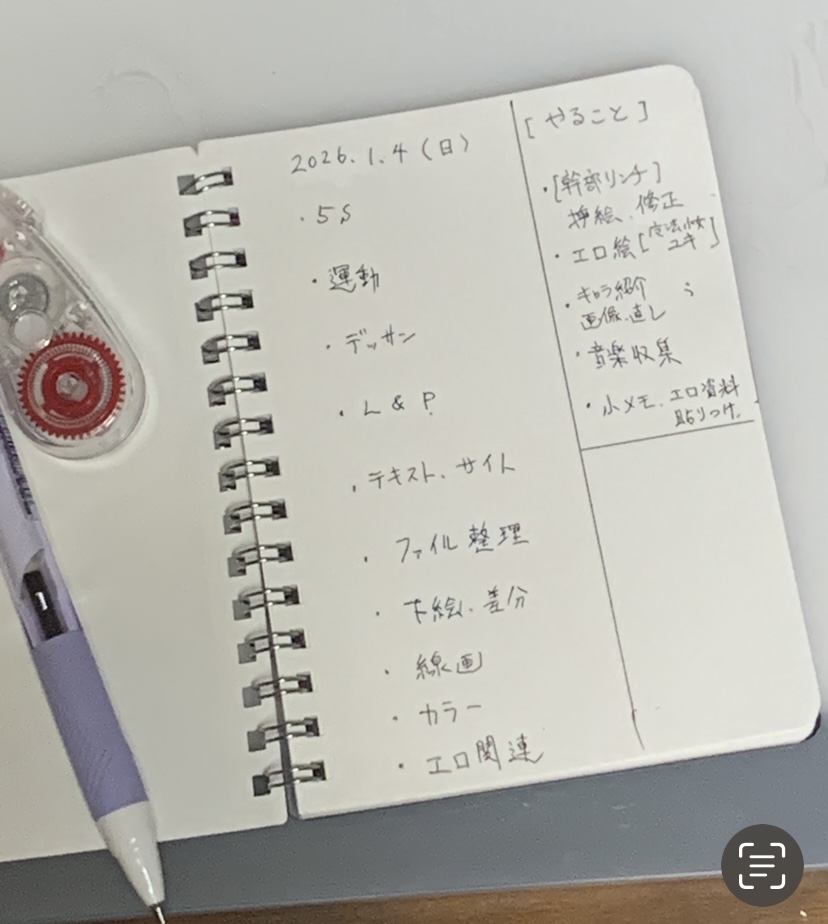 2026.1.4（日）
・5S
・運動
・デッサン
・L & P
・テキスト、サイト
・ファイル整理
・下絵、差分
・線画
・カラー
・エロ関連
[やること]
・[幹部リンチ]
挿絵、修正
・エロ絵[魔法少女
ユキ]
・キャラ紹介
画像、直し
・音楽収集
・小メモ、エロ資料
貼りつけ